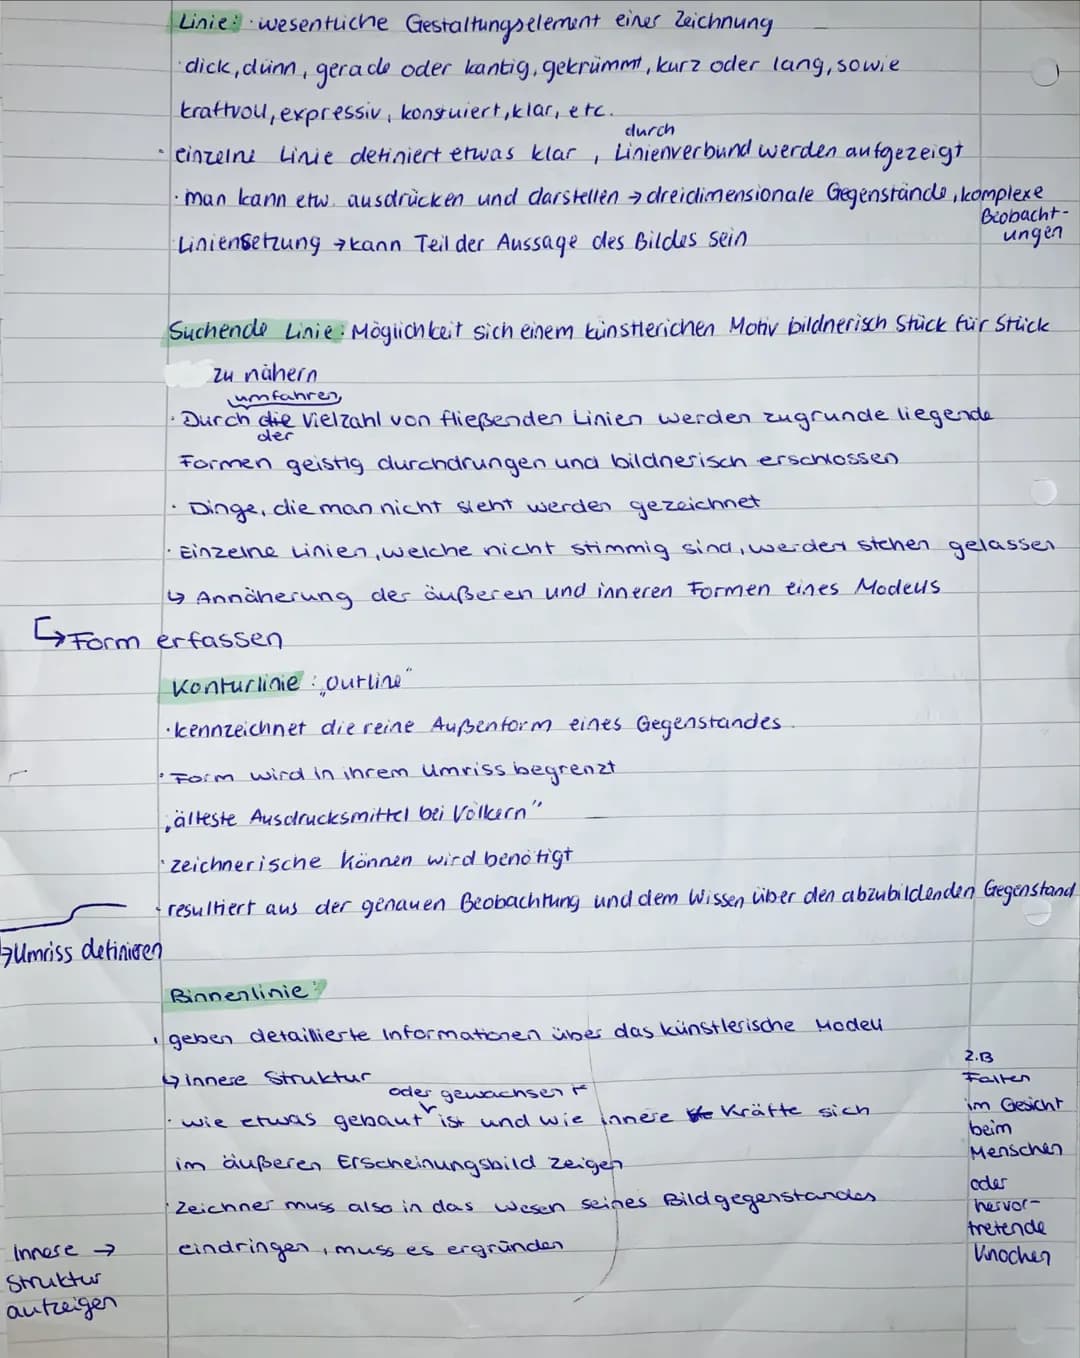 Linie: · wesentliche Gestaltungselement einer Zeichnung
· dick, dünn, gerade oder kantig, gekrümmt, kurz oder lang, sowie
kraftvoll, expressiv, konstuiert, klar, etc.
durch
· einzelne Linie definiert etwas klar, Linienverbund werden aufgezeigt
· man kann etw. ausdrücken und darstellen → dreidimensionale Gegenstände, komplexe
Beobacht-
ungen
Liniensetzung → kann Teil der Aussage des Bildes sein
Suchende Linie: Möglichkeit sich einem künstlerichen Motiv bildnerisch Stück für Stück
zu nähern
umfahren
· Durch die Vielzahl von fließenden Linien werden zugrunde liegende
der
Formen geistig durchdrungen und bildnerisch erschlossen
· Dinge, die man nicht sieht werden gezeichnet
· Einzelne Linien, welche nicht stimmig sind, werden stehen gelassen
↳ Annäherung der äußeren und inneren Formen eines Modells
↳ Form erfassen
Konturlinie: „outline"
· kennzeichnet die reine Außenform eines Gegenstandes
· Form wird in ihrem Umriss begrenzt
„älteste Ausdrucksmittel bei Völkern"
· zeichnerische Können wird benötigt
· resultiert aus der genauen Beobachtung und dem Wissen über den abzubildenden Gegenstand
→ Umriss definieren
Binnenlinie:
· geben detaillierte Informationen über das künstlerische Modell
↳ innere Struktur
oder gewachsen
· wie etwas gebaut ist und wie innere Kräfte sich
im äußeren Erscheinungsbild zeigen
· Zeichner muss also in das Wesen seines Bildgegenstandes
eindringen, muss es ergründen
z.B
Falten
im Gesicht
beim
Menschen
oder
hervor-
tretende
Knochen
Innere →
Struktur
aufzeigen